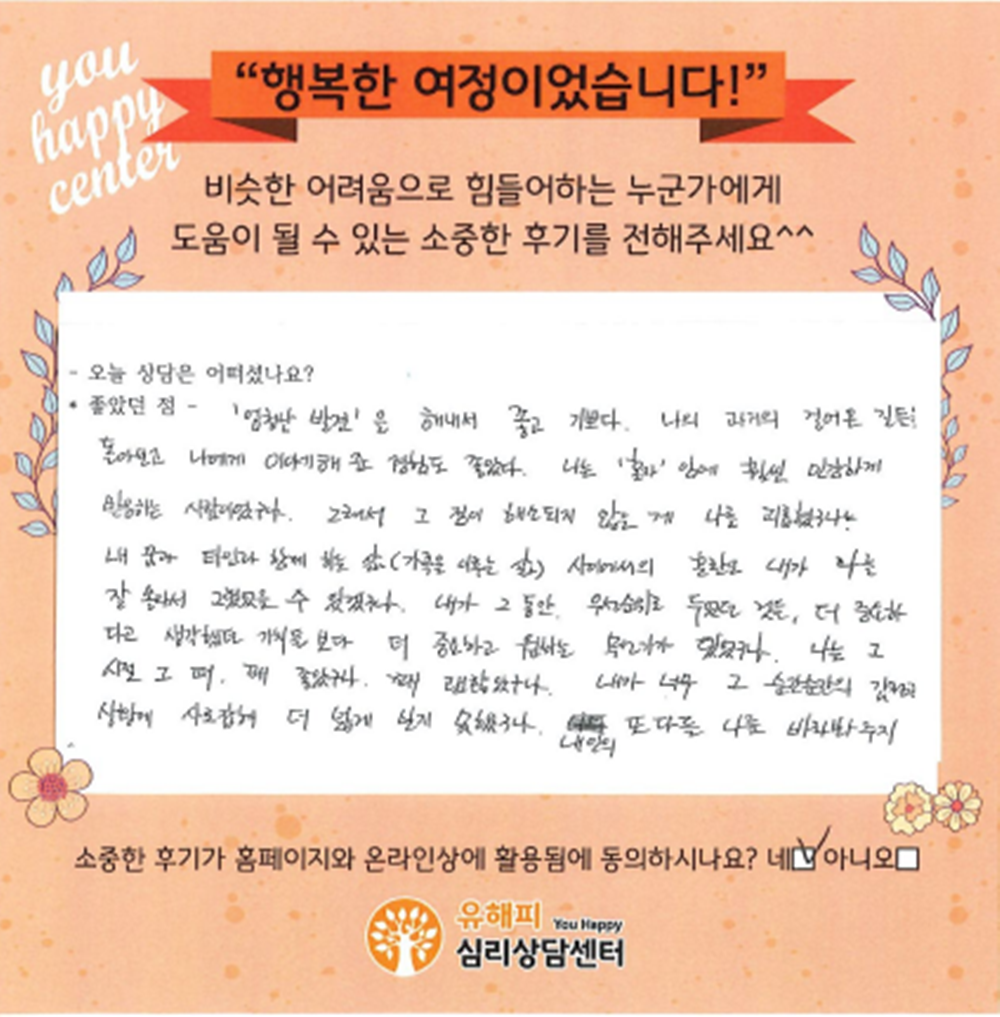 you
happy
center
“행복한 여정이었습니다!”
비슷한 어려움으로 힘들어하는 누군가에게
도움이 될 수 있는 소중한 후기를 전해주세요^^
- 오늘 상담은 어떠셨나요?
* 좋았던 점 - '엄청난 발견'을 해내서 좋고 기쁘다. 나의 과거의 걸어온 길들을
돌아보고 나에게 이야기해 준 경험도 좋았다. 나는 '혼자'임에 훨씬 민감하게
반응하는 사람이었구나. 그래서 그 점이 해소되지 않는 게 나를 괴롭혔구나.
내 꿈과 타인과 함께 하는 삶 (가족을 이루는 삶) 사이에서의 혼란도 내가 나를
잘 몰라서 그랬을 수 있겠구나. 내가 그 동안 우선순위로 두었던 것들, 더 중요하
다고 생각했던 가치들보다 더 중요하고 원하는 무언가가 있었구나. 나는 그
시절 그 때, 꽤 좋았구나. 꽤 괜찮았구나. 내가 너무 그 순간순간의 감정
상황에 사로잡혀 더 넓게 보지 못했구나. 내 안의 또 다른 나를 바라봐주지
소중한 후기가 홈페이지와 온라인상에 활용됨에 동의하시나요? 네 아니오
유해피 You Happy
심리상담센터